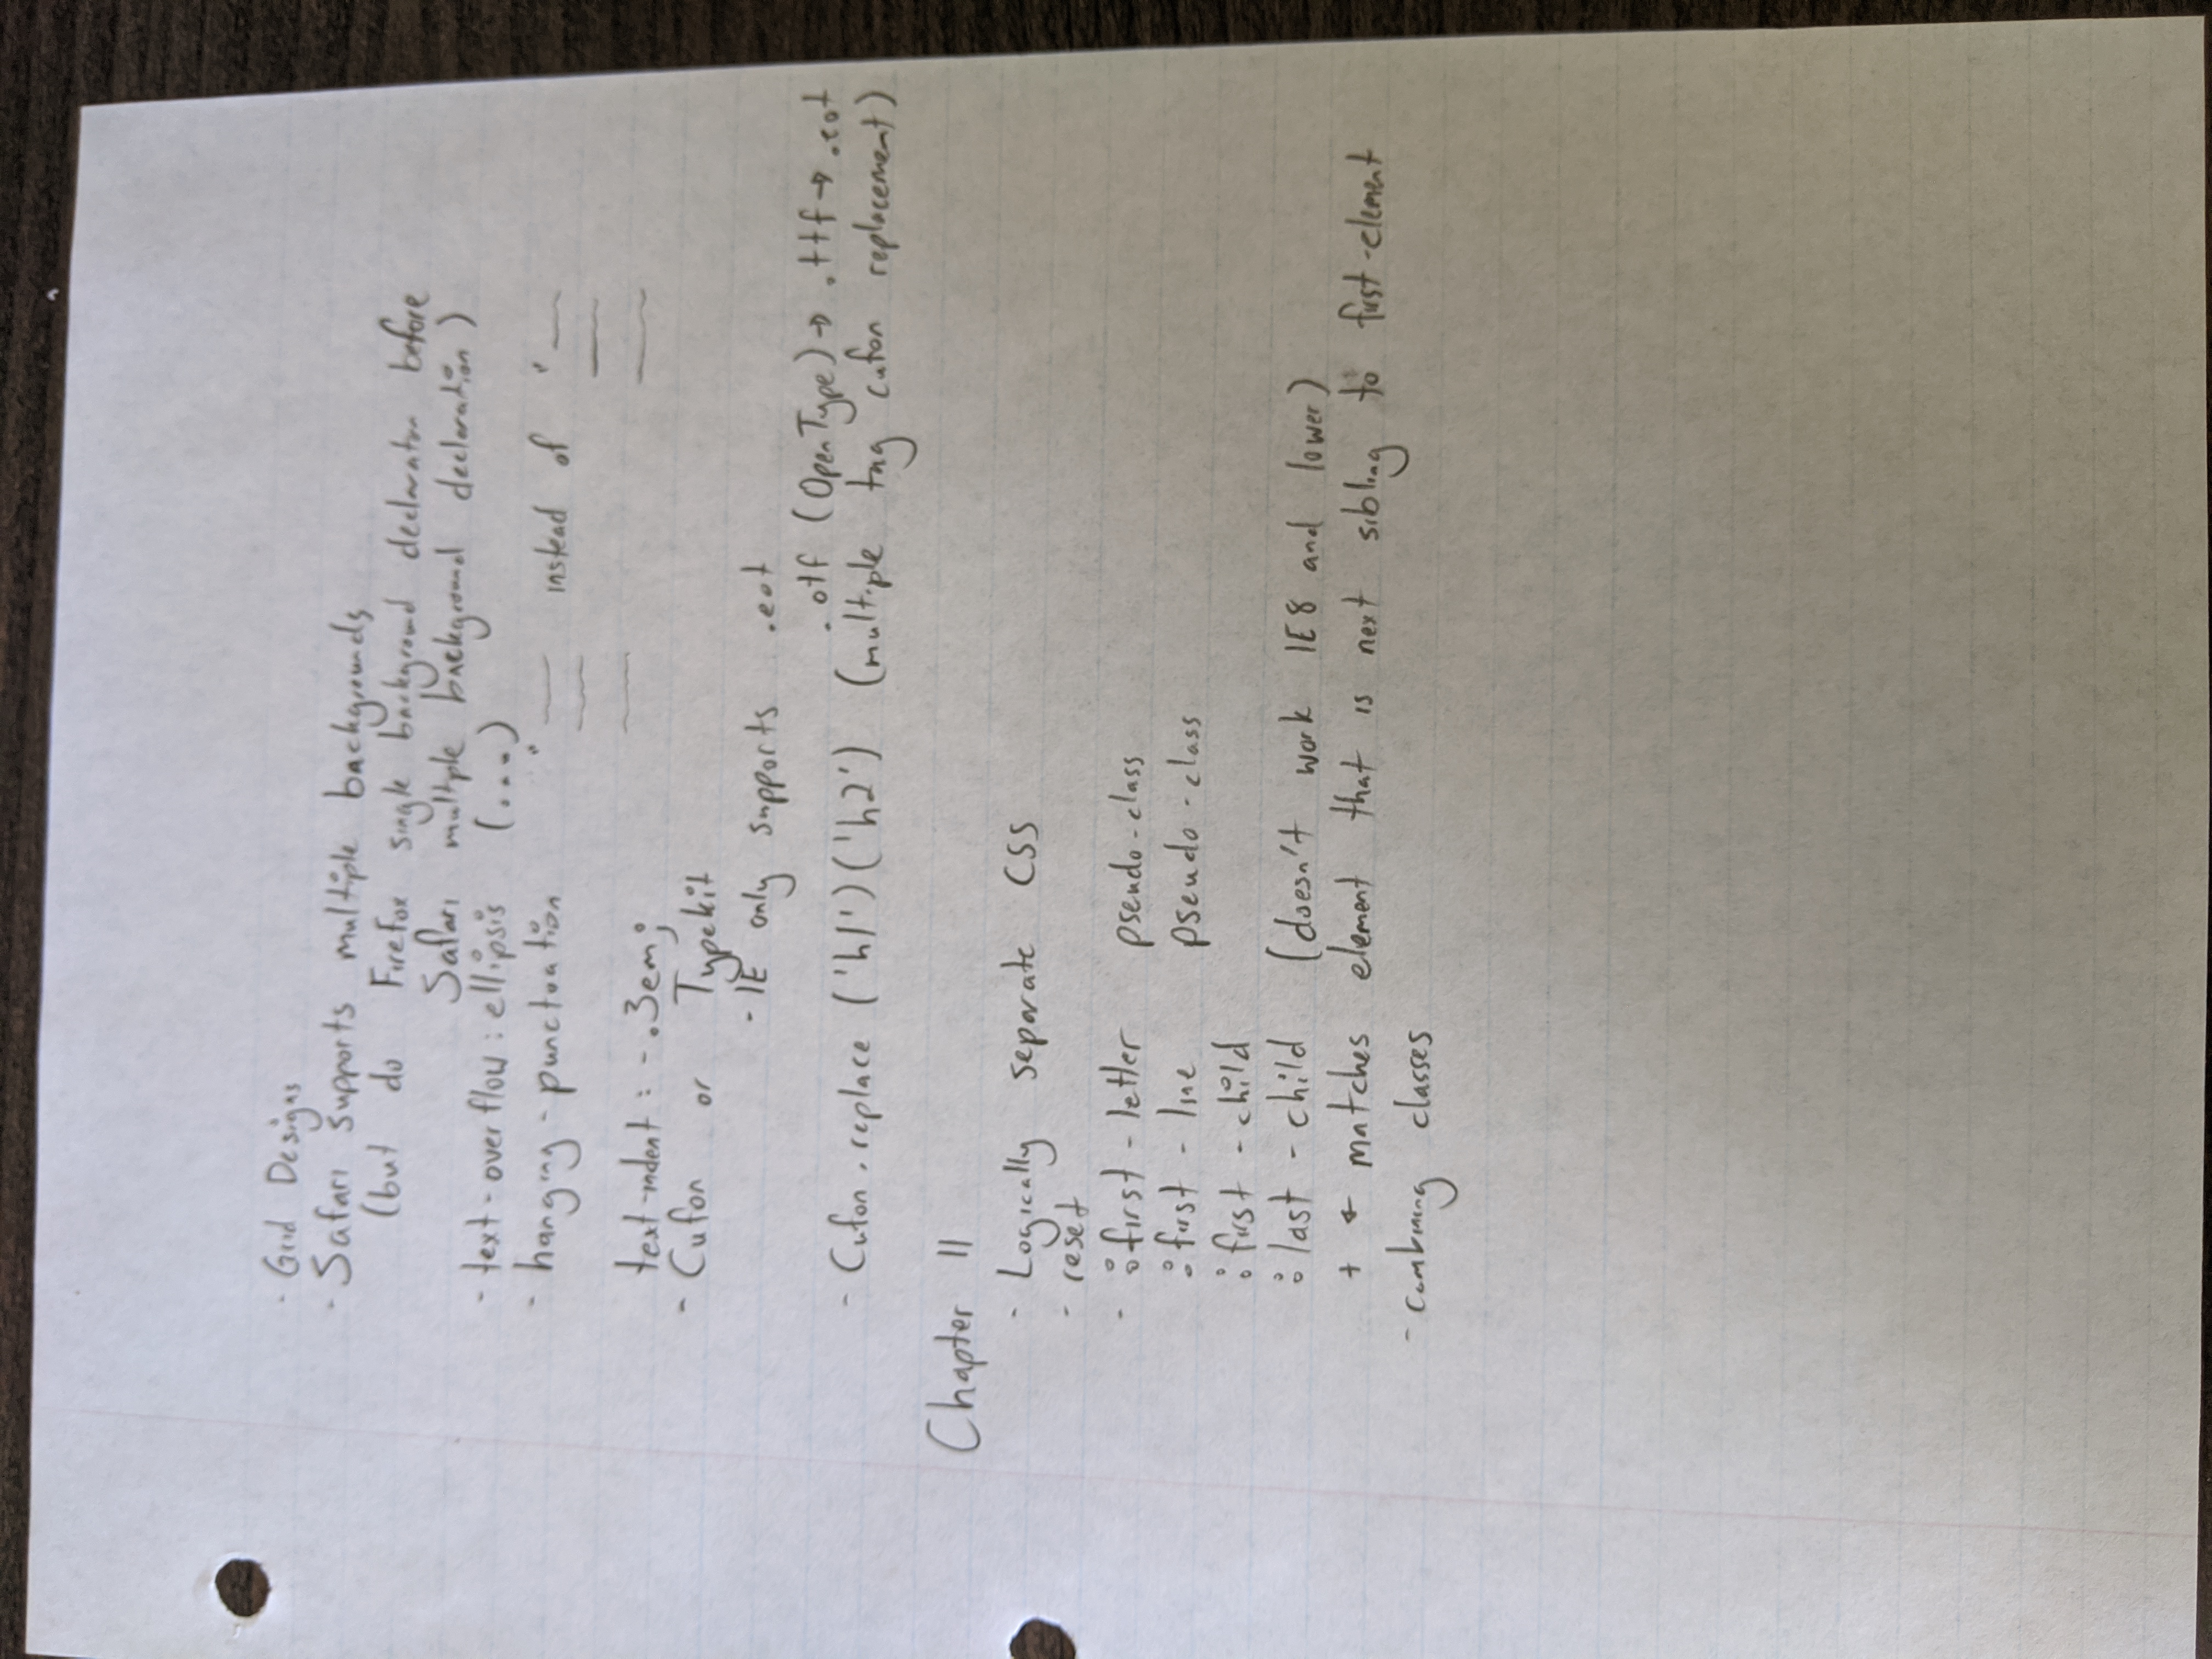 - Grid Designs
- Safari supports multiple backgrounds
(but do Firefox single background declaration before
Safari multiple background declaration)
- text-overflow: ellipsis (...)
- hanging-punctuation " instead of "
text-indent: -.3em;
- Cufon or Typekit
- IE only supports .eot
.otf (OpenType) → .ttf → .eot
- Cufon.replace ('h1')('h2') (multiple tag cufon replacement)
Chapter 11
- Logically separate CSS
- reset
- :first-letter pseudo-class
:first-line pseudo-class
:first-child
:last-child (doesn't work IE8 and lower)
+ ← matches element that is next sibling to first-element
- combining classes